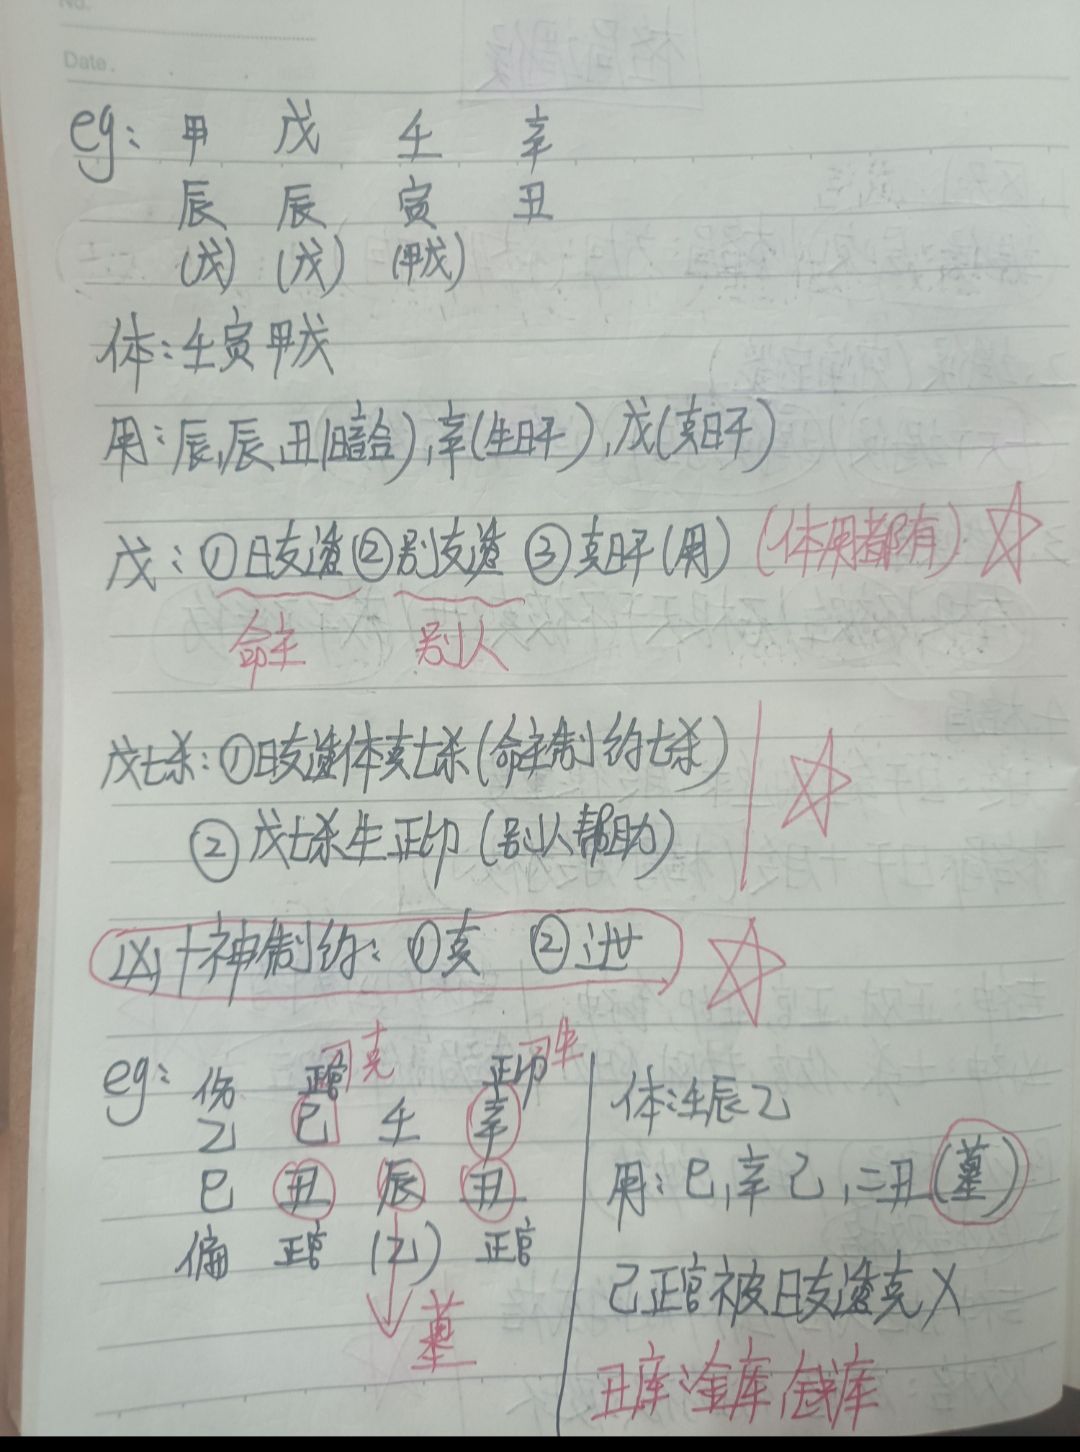 No.
Date.
eg: 甲 戊 壬 辛
辰 辰 寅 丑
(戊) (戊) (甲戊)
体:壬寅甲戊
用:辰,辰,丑(暗合),辛(生日干),戊(克日干)
戊:①日支透②别支透 ③克日干(用) (体用都有)
命主 别人
戊七杀:①日支透体克七杀(命主制约七杀)
②戊七杀生正印(别人帮助)
凶十神制约:①克 ②泄
eg: 伤 正官 克 正印 生
乙 己 壬 辛
巳 丑 辰 丑
偏 正官 (乙) 正官
墓
体:壬辰乙
用:巳,辛己,二丑(墓)
己正官被日支透克X
丑库:金库,钱库